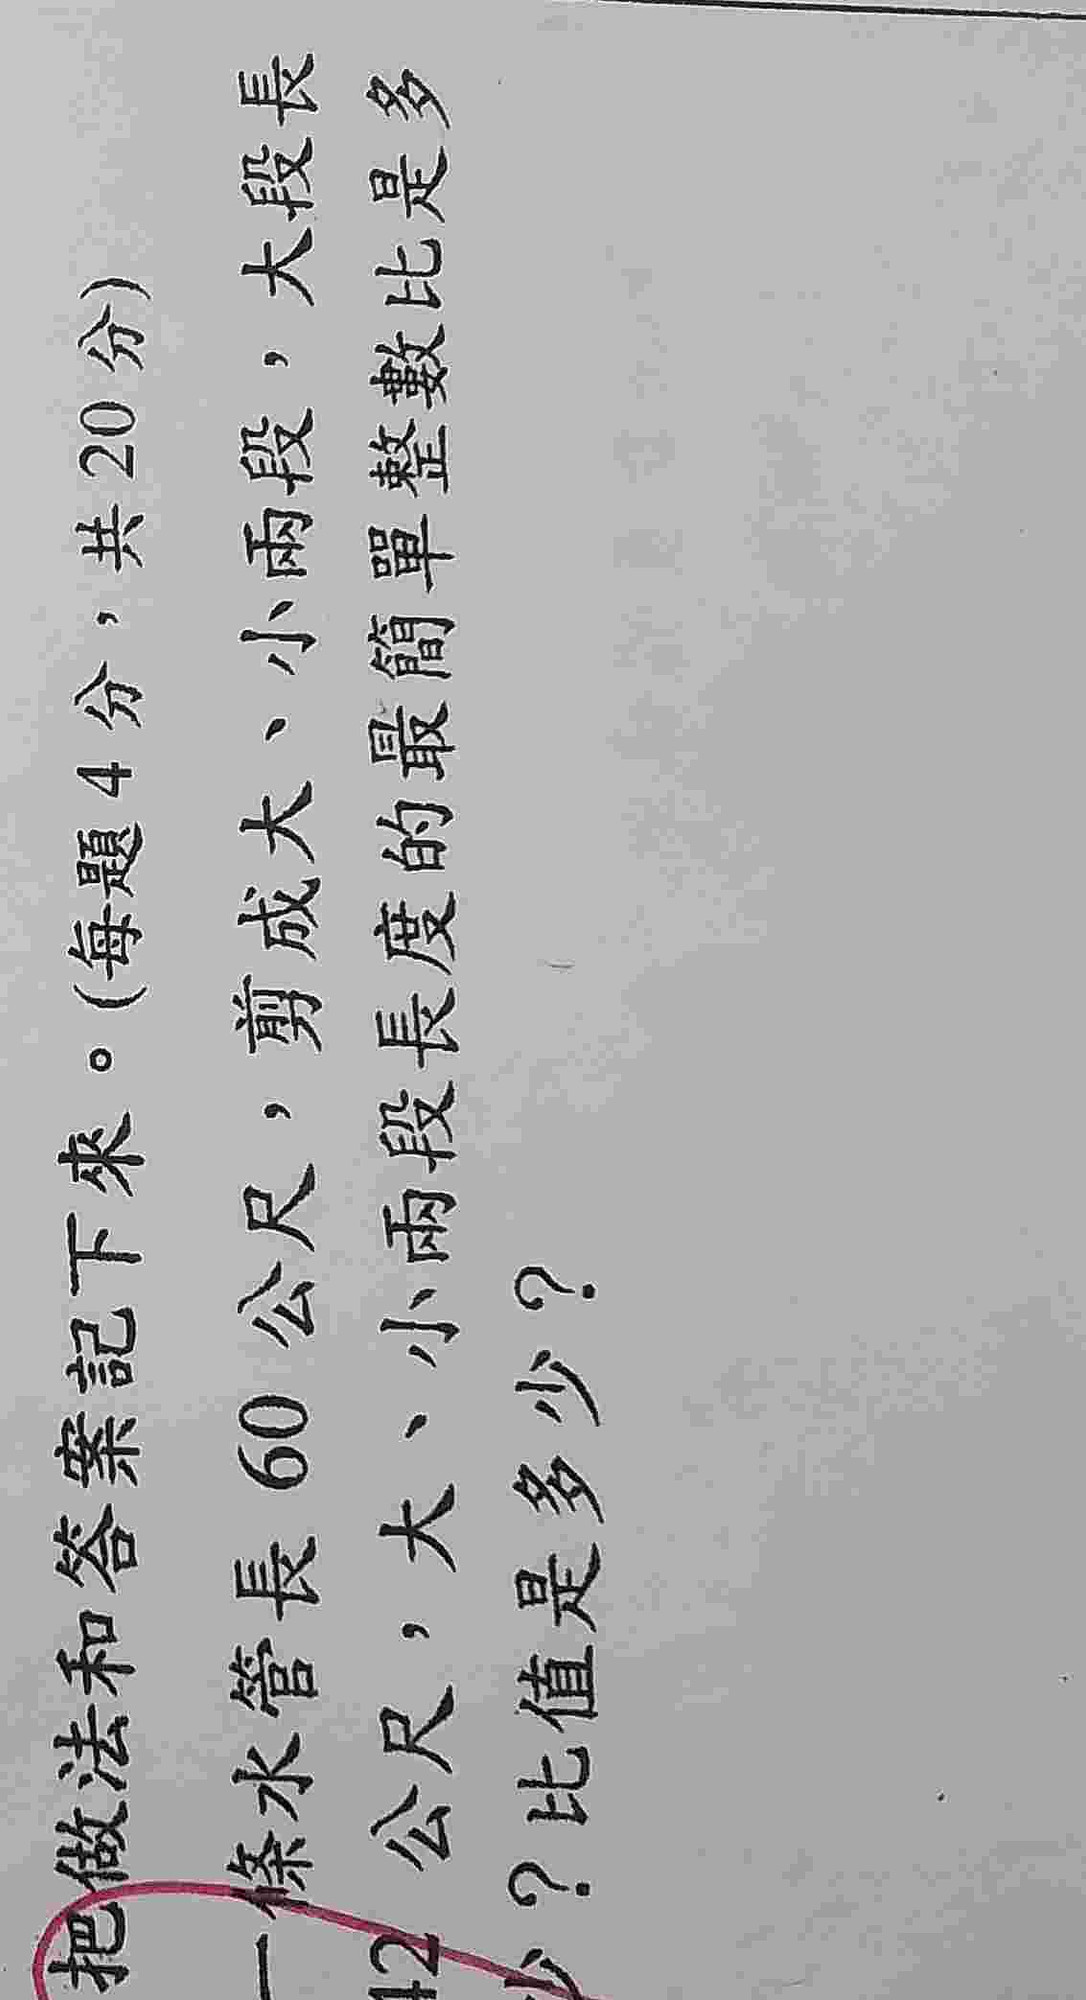 把做法和答案記下來。(每題 4 分，共 20 分)
一條水管長 60 公尺，剪成大、小兩段，大段長
42 公尺，大、小兩段長度的最簡單整數比是多
少？比值是多少？